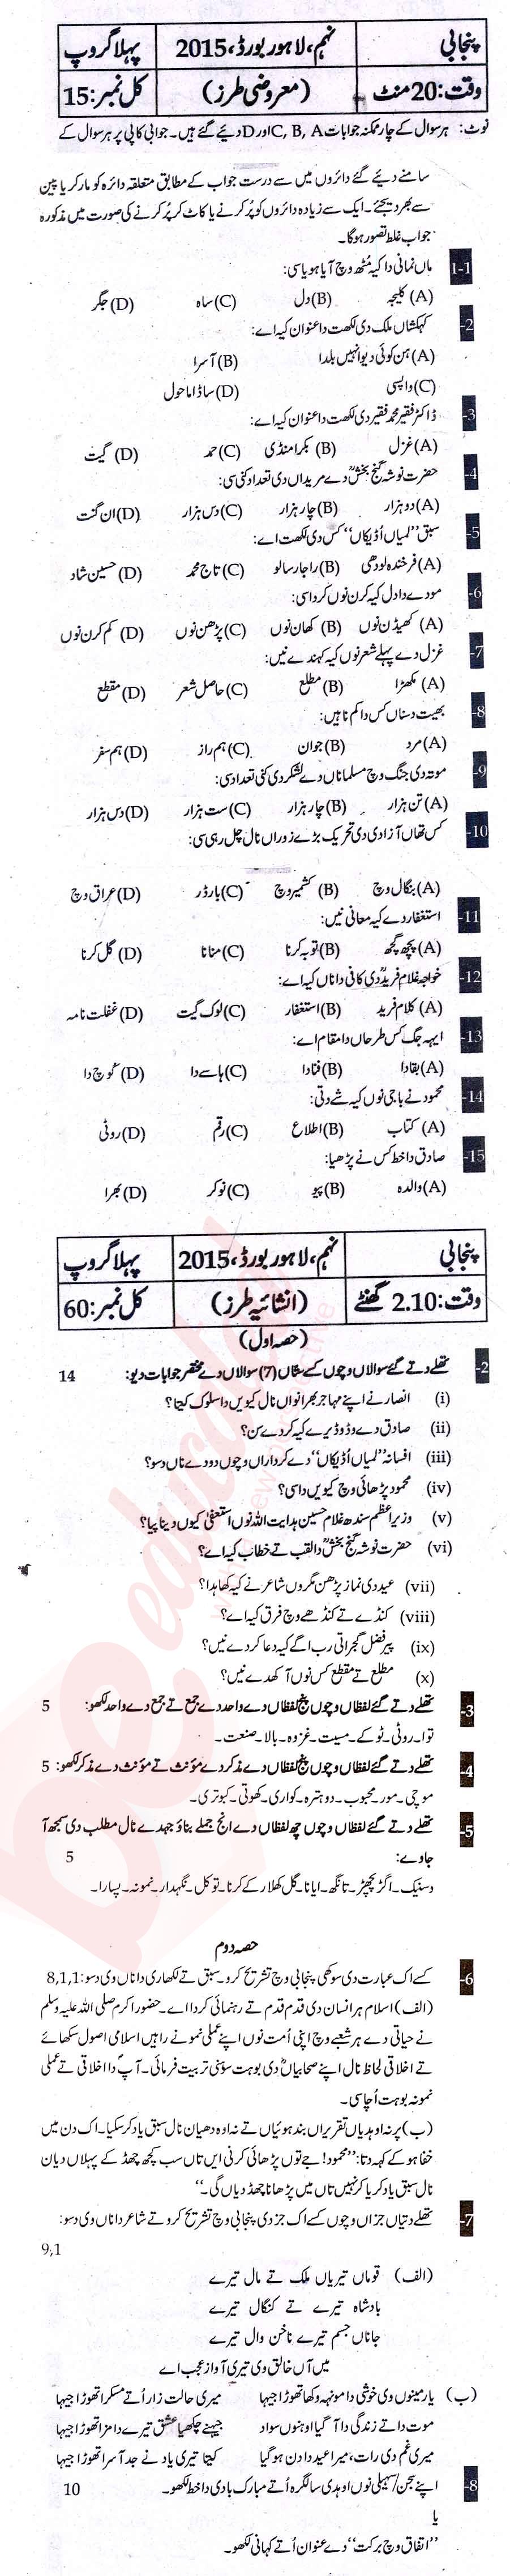 پنجابی
نہم، لاہور بورڈ، 2015
پہلا گروپ
وقت: 20 منٹ
(معروضی طرز)
کل نمبر: 15
نوٹ: ہر سوال کے چار ممکنہ جوابات C, B, A اور D دیئے گئے ہیں۔ جوابی کاپی پر ہر سوال کے
سامنے دیئے گئے دائروں میں سے درست جواب کے مطابق متعلقہ دائرہ کو مارکر یا پین
سے بھر دیجئے۔ ایک سے زیادہ دائروں کو پُر کرنے یا کاٹ کر پُر کرنے کی صورت میں مذکورہ
جواب غلط تصور ہوگا۔
1-1 ماں نمانی دا کیہ مُٹھ وچ آیا ہویا سی:
(A) کلیجہ (B) دل (C) ساہ (D) جگر
2- کہکشاں ملک دی لکھت دا عنوان کیہ اے:
(A) ہن کوئی دیوا نہیں بلدا (B) آسرا
(C) واپسی (D) ساڈا ماحول
3- ڈاکٹر فقیر محمد فقیر دی لکھت دا عنوان کیہ اے:
(A) غزل (B) بکرا منڈی (C) حمد (D) گیت
4- حضرت نوشہ گنج بخشؒ دے مریداں دی تعداد کنی سی:
(A) دو ہزار (B) چار ہزار (C) دس ہزار (D) ان گنت
5- سبق "لمیاں اُڈیکاں" کس دی لکھت اے:
(A) فرخندہ لودھی (B) راجا رسالو (C) تاج محمد (D) حسین شاد
6- مودے دا دل کیہ کرن نوں کردا سی:
(A) کھیڈن نوں (B) کھان نوں (C) پڑھن نوں (D) کم کرن نوں
7- غزل دے پہلے شعر نوں کیہ کہندے نیں:
(A) مکھڑا (B) مطلع (C) حاصل شعر (D) مقطع
8- بھیت دسناں کس دا کم نا ہیں:
(A) مرد (B) جوان (C) ہم راز (D) ہم سفر
9- موتہ دی جنگ وچ مسلماناں دے لشکر دی کنی تعداد سی:
(A) تن ہزار (B) چار ہزار (C) ست ہزار (D) دس ہزار
10- کس تھاں آزادی دی تحریک بڑے زوراں نال چل رہی سی:
(A) بنگال وچ (B) کشمیر وچ (C) بارڈر (D) عراق وچ
11- استغفار دے کیہ معانی نیں:
(A) پچھ گچھ (B) توبہ کرنا (C) منانا (D) گل کرنا
12- خواجہ غلام فریدؒ دی کافی دا ناں کیہ اے:
(A) کلام فرید (B) استغفار (C) لوک گیت (D) غفلت نامہ
13- ایہہ جگ کس طرحاں دا مقام اے:
(A) بقا دا (B) فنا دا (C) ہاسے دا (D) کُوچ دا
14- محمود نے باجی نوں کیہ شے دتی:
(A) کتاب (B) اطلاع (C) رقم (D) روٹی
15- صادق دا خط کس نے پڑھیا:
(A) والدہ (B) پیو (C) نوکر (D) بھرا
پنجابی
نہم، لاہور بورڈ، 2015
پہلا گروپ
وقت: 2.10 گھنٹے
(انشائیہ طرز)
کل نمبر: 60
(حصہ اول)
2- تھلے دتے گئے سوالاں وچوں کسے ستاں (7) سوالاں دے مختصر جوابات دیو: 14
(i) انصار نے اپنے مہاجر بھرانواں نال کیویں دا سلوک کیتا؟
(ii) صادق دے وڈ وڈیرے کیہ کردے سن؟
(iii) افسانہ "لمیاں اُڈیکاں" دے کرداراں وچوں دو دے ناں دسو؟
(iv) محمود پڑھائی وچ کیویں دا سی؟
(v) وزیراعظم سندھ غلام حسین ہدایت اللہ نوں استعفیٰ کیوں دینا پیا؟
(vi) حضرت نوشہ گنج بخشؒ دا لقب تے خطاب کیہ اے؟
(vii) عید دی نماز پڑھن مگروں شاعر نے کیہ کھاہدا؟
(viii) کنڈے تے کنڈھے وچ فرق کیہ اے؟
(ix) پیر فضل گجراتی رب اگے کیہ دعا کردے نیں؟
(x) مطلع تے مقطع کس نوں آکھدے نیں؟
3- تھلے دتے گئے لفظاں وچوں پنج لفظاں دے واحد دے جمع تے جمع دے واحد لکھو: 5
توا۔ روٹی۔ ٹوکے۔ مسیت۔ غزوہ۔ بالا۔ صنعت۔
4- تھلے دتے گئے لفظاں وچوں پنج لفظاں دے مذکر دے مؤنث تے مؤنث دے مذکر لکھو: 5
موچی۔ مور۔ محبوب۔ دوہترہ۔ کواری۔ کھوتی۔ کبوتری۔
5- تھلے دتے گئے لفظاں وچوں چھ لفظاں دے انج جملے بناؤ جہدے نال مطلب دی سمجھ آ
جاوے: 5
وسنیک۔ اگڑ پچھڑ۔ تانگھ۔ ایانا۔ گل کھلار کے کرنا۔ توکل۔ نگہدار۔ نمونہ۔ پسارا۔
حصہ دوم
6- کسے اک عبارت دی سوکھی پنجابی وچ تشریح کرو۔ سبق تے لکھاری دا ناں وی دسو: 8,1,1
(الف) اسلام ہر انسان دی قدم قدم تے رہنمائی کردا اے۔ حضور اکرم صلی اللہ علیہ وسلم
نے حیاتی دے ہر شعبے وچ اپنی اُمت نوں اپنے عملی نمونے راہیں اسلامی اصول سکھائے
تے اخلاقی لحاظ نال اپنے صحابیاںؓ دی بوہت سوہنی تربیت فرمائی۔ آپؐ دا اخلاقی تے عملی
نمونہ بوہت اُچا سی۔
(ب) پر نہ اوہدیاں تقریراں بند ہوئیاں تے نہ اوہ دھیان نال سبق یاد کر سکیا۔ اک دن میں
خفا ہو کے کہہ دتا: "محمود! جے توں پڑھائی کرنی ایں تاں سب کجھ چھڈ کے پہلاں دیان
نال سبق یاد کر یا کر نہیں تاں میں پڑھانا چھڈ دیاں گی۔"
7- تھلے دتیاں جزاں وچوں کسے اک جز دی پنجابی وچ تشریح کرو تے شاعر دا ناں وی دسو:
9,1
(الف) قوماں تیریاں ملک تے مال تیرے
بادشاہ تیرے تے کنگال تیرے
جاناں جسم تیرے ناخن وال تیرے
میں آں خالق وی تیری آواز عجب اے
(ب) یار مینوں وی خوشی دا مونہہ وکھا تھوڑا جیہا میری حالت زار اُتے مسکرا تھوڑا جیہا
موت دا تے زندگی دا آ گیا اوہنوں سواد جیہنے چکھیا عشق تیرے دا مزا تھوڑا جیہا
میری غم دی رات، میرا عید دا دن ہو گیا کیتا تیری یاد نے جد آسرا تھوڑا جیہا
8- اپنے سجن/سہیلی نوں اوہدی سالگرہ اُتے مبارک بادی دا خط لکھو۔ 10
یا
"اتفاق وچ برکت" دے عنوان اُتے کہانی لکھو۔